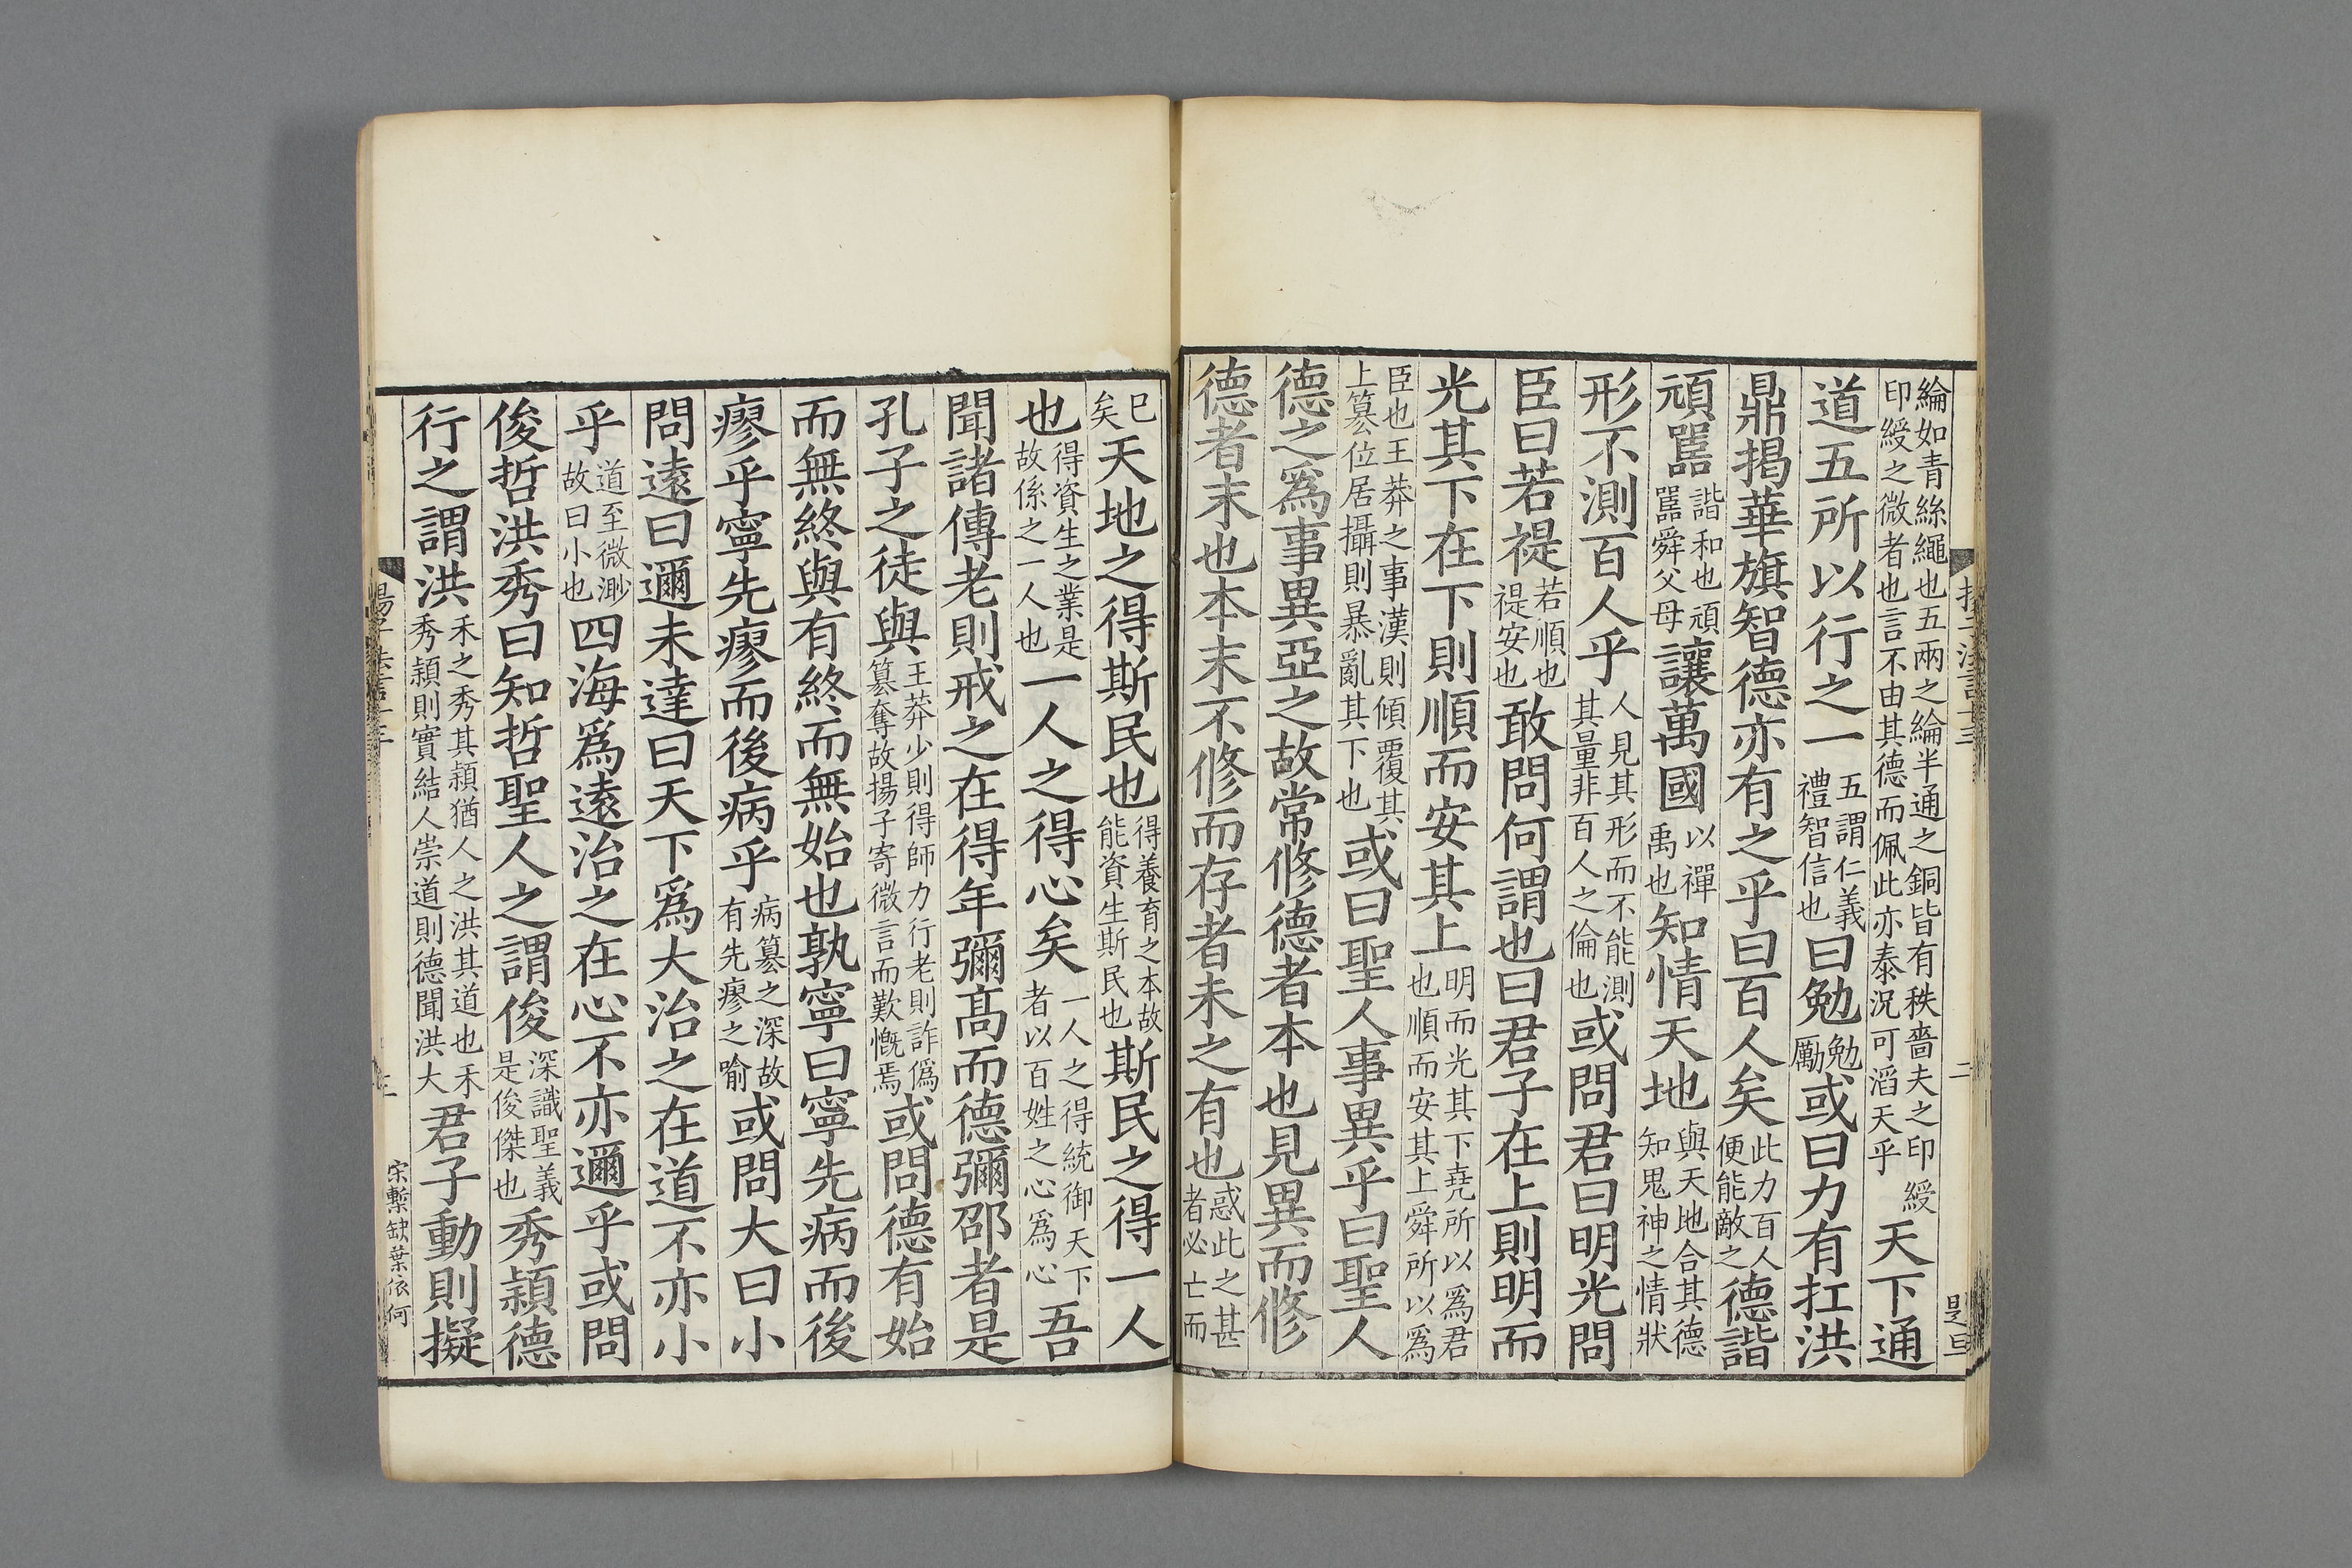 揚子法言十三
二
是旦
綸如青絲繩也五兩之綸半通之銅皆有秩嗇夫之印綬
印綬之微者也言不由其德而佩此亦泰況可滔天乎天下通
道五所以行之一五謂仁義禮智信也曰勉勉勵或曰力有扛洪
鼎揭華旗智德亦有之乎曰百人矣此力百人便能敵之德諧
頑嚚諧和也頑嚚舜父母讓萬國以禪禹也知情天地與天地合其德知鬼神之情狀
形不測百人乎人見其形而不能測其量非百人之倫也或問君曰明光問
臣曰若禔若順也禔安也敢問何謂也曰君子在上則明而
光其下在下則順而安其上明而光其下堯所以爲君也順而安其上舜所以爲
臣也王莽之事漢則傾覆其上篡位居攝則暴亂其下也或曰聖人事異乎曰聖人
德之爲事異亞之故常修德者本也見異而修
德者末也本末不修而存者未之有也惑此之甚者必亡而
已矣天地之得斯民也得養育之本故能資生斯民也斯民之得一人
也得資生之業是故係之一人也一人之得心矣一人之得統御天下者以百姓之心爲心吾
聞諸傳老則戒之在得年彌高而德彌邵者是
孔子之徒與王莽少則得師力行老則詐僞篡奪故揚子寄微言而歎慨焉或問德有始
而無終與有終而無始也孰寧曰寧先病而後
瘳乎寧先瘳而後病乎病篡之深故有先瘳之喻或問大曰小
問遠曰邇未達曰天下爲大治之在道不亦小
乎道至微渺故曰小也四海爲遠治之在心不亦邇乎或問
俊哲洪秀曰知哲聖人之謂俊深識聖義是俊傑也秀穎德
行之謂洪禾之秀其穎猶人之洪其道也禾秀穎則實結人崇道則德聞洪大君子動則擬
揚子法言十三
三
宋槧缺葉依何